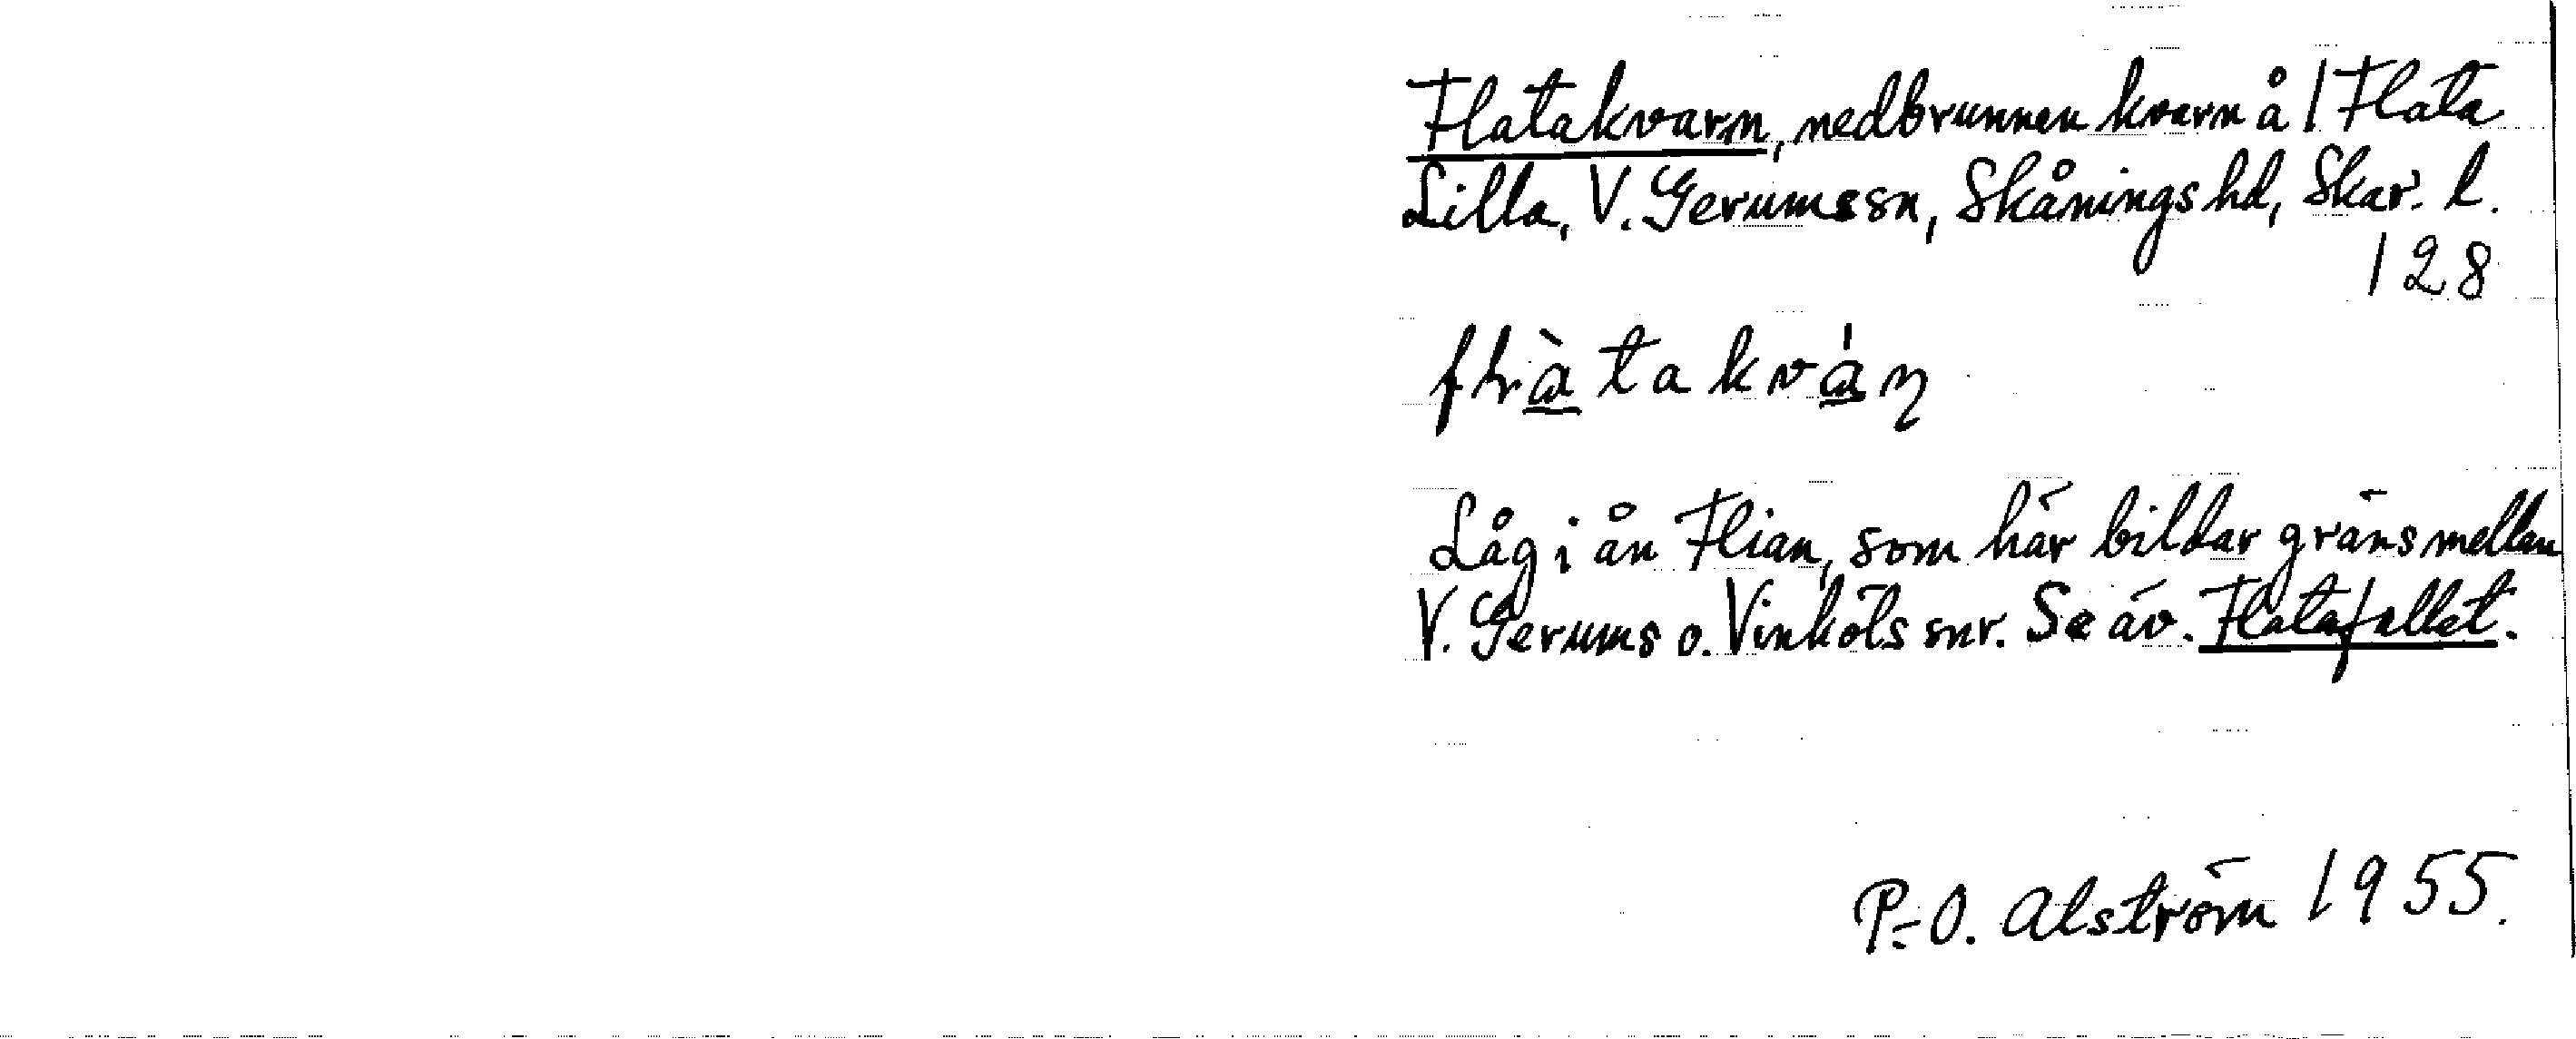 Flatakvarn, nedbrunnen kvarn å 1 Flata
Lilla, V. Gerumssn, Skånings hd, Skar. l.
128
Låg i ån Flian, som här bildar gräns mellan
V. Gerums o. Vinköls snr. Se äv. Flatafallet.
P.-O. Alström 1955.